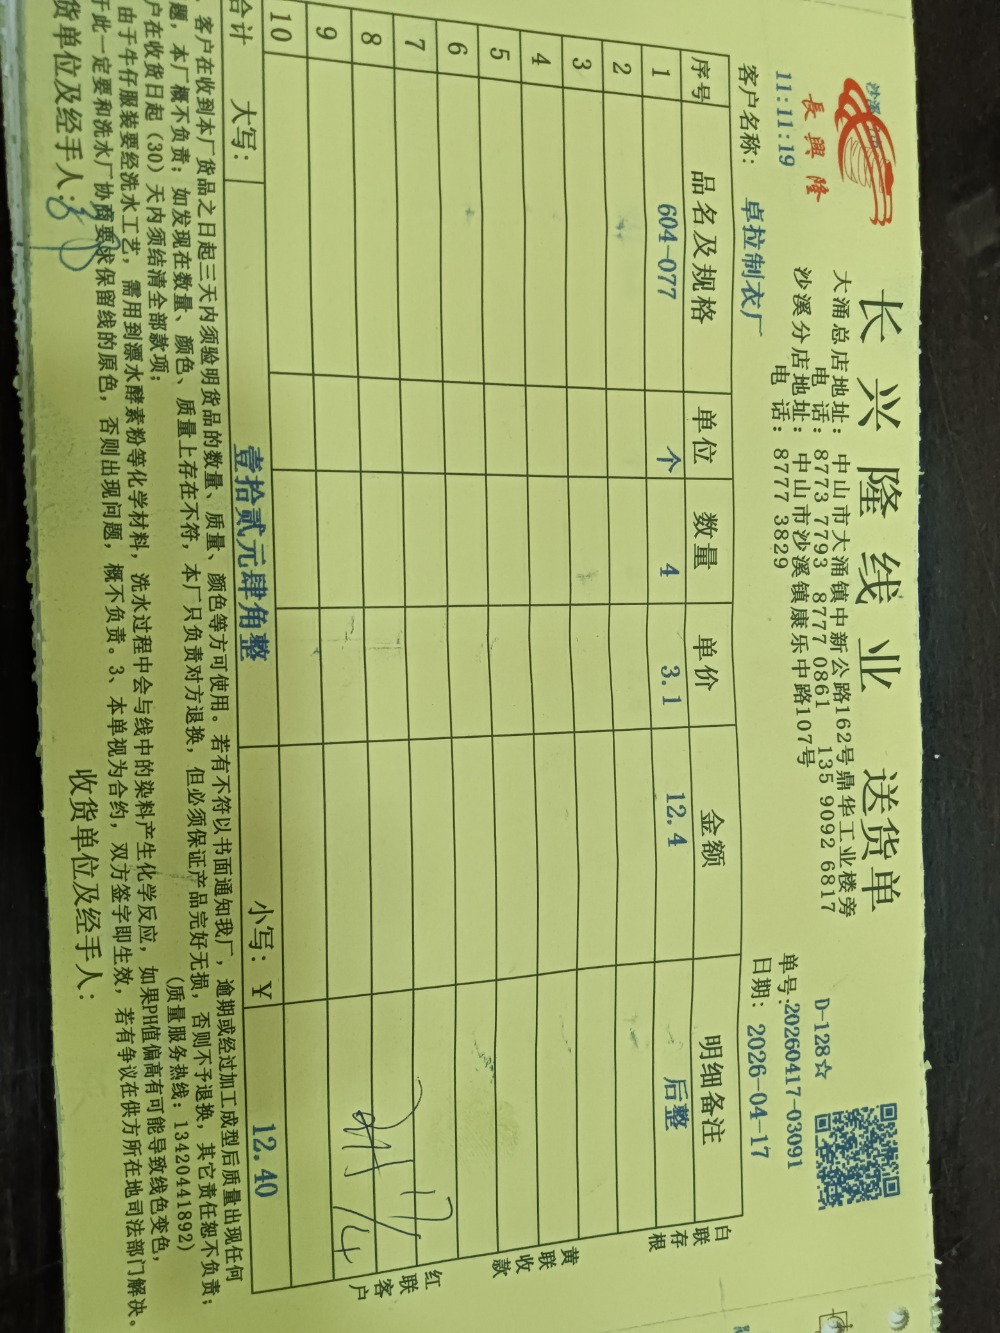 長興隆
长兴隆线业 送货单
大涌总店地址：中山市大涌镇中新公路162号鼎华工业楼旁
电 话：8773 7793 8777 0861 135 9092 6817
沙溪分店地址：中山市沙溪镇康乐中路107号
电 话：8777 3829
11:11:19
D-128☆
单号:20260417-03091
客户名称： 卓拉制衣厂
日期：2026-04-17
序号 品名及规格 单位 数量 单价 金额 明细备注
1 604-077 个 4 3.1 12.4 后整
2
3
4
5
6
7
8
9
10
合计 大写： 壹拾贰元肆角整 小写：￥ 12.40
白联存根
黄联收款
红联客户
客户在收到本厂货品之日起三天内须验明货品的数量、质量、颜色等方可使用。若有不符以书面通知我厂，逾期或经过加工成型后质量出现任何
题，本厂概不负责；如发现在数量、颜色、质量上存在不符，本厂只负责对方退换，但必须保证产品完好无损，否则不予退换，其它责任恕不负责；
户在收货日起（30）天内须结清全部款项； （质量服务热线：13420441892）
由于牛仔服装要经洗水工艺，需用到漂水酵素粉等化学材料，洗水过程中会与线中的染料产生化学反应，如果PH值偏高有可能导致线色变色，
于此一定要和洗水厂协商要求保留线的原色，否则出现问题，概不负责。3、本单视为合约，双方签字即生效，若有争议在供方所在地司法部门解决。
货单位及经手人： 收货单位及经手人：